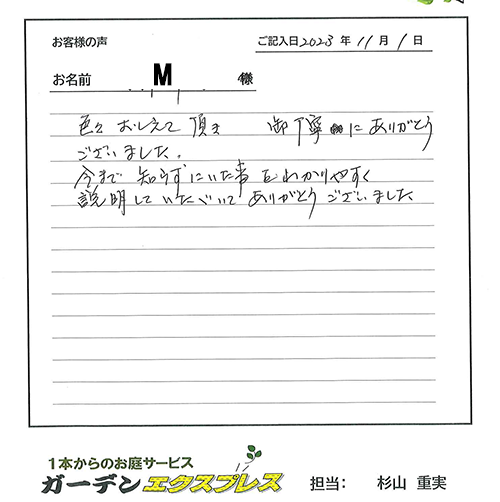 お客様の声 ご記入日2023年11月1日
お名前 M 様
色々おしえて頂き 御丁寧にありがとう
ございました。
今まで知らずにいた事をわかりやすく
説明していただいてありがとうございました
1本からのお庭サービス
ガーデンエクスプレス 担当: 杉山 重実